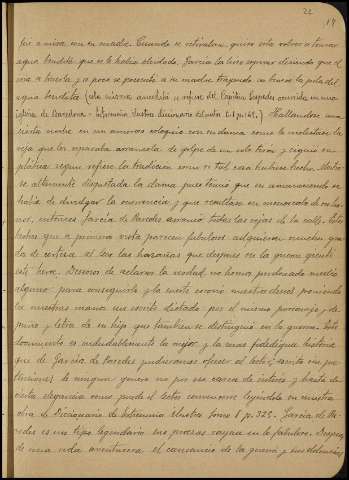 22
17
fue a misa con su madre. Cuando se retiraban, quiso esta volver a tomar
agua bendita que se le habia olvidado. Garcia la hizo esperar diciendo que el
iria a buscarla y a poco se presentó a su madre trayendo en brazos la pila del
agua bendita (esta misma anecdota se refiere del Capitan Cespedes ocurrida en una
iglesia de Barcelona
Hallandose una
cierta noche en un amoroso coloquio con su dama como le molestase la
reja que les separaba arrancola de golpe de un solo tiron y siguió su
plática segun refiere la tradicion como si tal cosa hubiese hecho. Mostro-
se altamente disgustada la dama, pues temió que en amaneciendo se
habia de divulgar la ocurrencia y que resultase en menoscabo de su ho-
nor, entonces Garcia de Paredes arrancó todas las rejas de la calle. Estos
hechos que a primera vista parecen fabulosos adquieren mucho gra-
do de certeza al leer las hazañas que despues en la guerra practicó
este heroe. Deseoso de aclarar la verdad no hemos perdonado medio
alguno para conseguirlo y la suerte coronó nuestros deseos poniendo
en nuestras manos un escrito dictado por el mismo personaje y de
puño y letra de su hijo que tambien se distinguió en la guerra. Este
documento es indudablemente la mejor y la mas fidedigna historia
que de Garcia de Paredes pudieramos ofrecer al lector, escrita sin pre-
tensiones de ningun genero no por eso carece de interes y hasta de
cierta elegancia como puede el lector convencerse leyendola en nuestra
obra de Diccionario de Extremeños Ilustres tomo 1 p. 325. Garcia de Pa-
redes es un tipo legendario sus proezas rayan en lo fabuloso. Despues
de una vida aventurera el cansancio de la guerra y sus dolencias